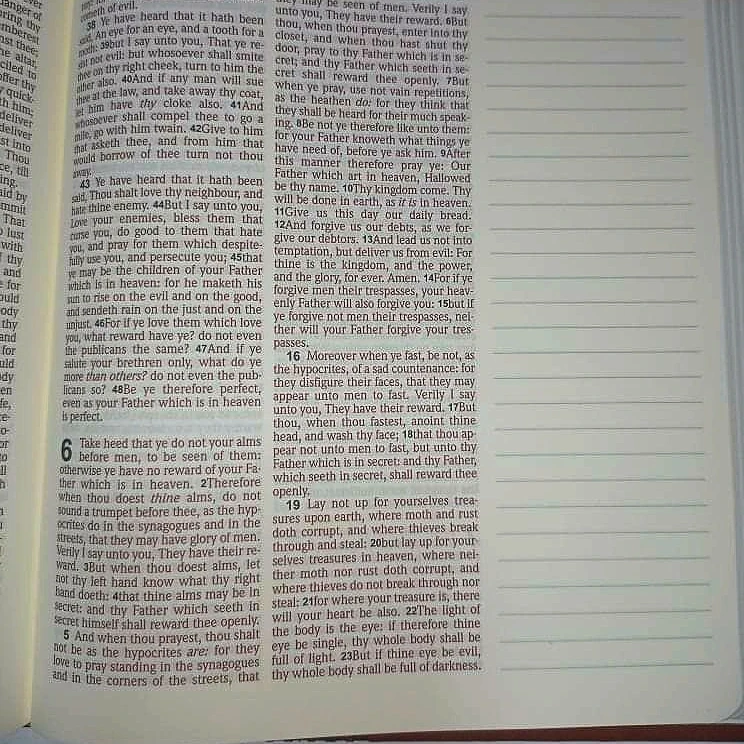 anger of
ring thy
nst thee;
e altar,
ciled to
offer thy
quick-
th him;
deliver
deliver
st into
Thou
ce, till
ing.
aid by
mmit
That
lust
with
thy
and
e for
ould
ody
thy
and
for
uld
dy
en
fe,
ce-
cometh of evil.
38 Ye have heard that it hath been
said, An eye for an eye, and a tooth for a
tooth: 39but I say unto you, That ye re-
sist not evil: but whosoever shall smite
thee on thy right cheek, turn to him the
other also. 40And if any man will sue
thee at the law, and take away thy coat,
let him have thy cloke also. 41And
whosoever shall compel thee to go a
mile, go with him twain. 42Give to him
that asketh thee, and from him that
would borrow of thee turn not thou
away.
43 Ye have heard that it hath been
said, Thou shalt love thy neighbour, and
hate thine enemy. 44But I say unto you,
Love your enemies, bless them that
curse you, do good to them that hate
you, and pray for them which despite-
fully use you, and persecute you; 45that
ye may be the children of your Father
which is in heaven: for he maketh his
sun to rise on the evil and on the good,
and sendeth rain on the just and on the
unjust. 46For if ye love them which love
you, what reward have ye? do not even
the publicans the same? 47And if ye
salute your brethren only, what do ye
more than others? do not even the pub-
licans so? 48Be ye therefore perfect,
even as your Father which is in heaven
is perfect.
6 Take heed that ye do not your alms
before men, to be seen of them:
otherwise ye have no reward of your Fa-
ther which is in heaven. 2Therefore
when thou doest thine alms, do not
sound a trumpet before thee, as the hyp-
ocrites do in the synagogues and in the
streets, that they may have glory of men.
Verily I say unto you, They have their re-
ward. 3But when thou doest alms, let
not thy left hand know what thy right
hand doeth: 4that thine alms may be in
secret: and thy Father which seeth in
secret himself shall reward thee openly.
5 And when thou prayest, thou shalt
not be as the hypocrites are: for they
love to pray standing in the synagogues
and in the corners of the streets, that
they may be seen of men. Verily I say
unto you, They have their reward. 6But
thou, when thou prayest, enter into thy
closet, and when thou hast shut thy
door, pray to thy Father which is in se-
cret; and thy Father which seeth in se-
cret shall reward thee openly. 7But
when ye pray, use not vain repetitions,
as the heathen do: for they think that
they shall be heard for their much speak-
ing. 8Be not ye therefore like unto them:
for your Father knoweth what things ye
have need of, before ye ask him. 9After
this manner therefore pray ye: Our
Father which art in heaven, Hallowed
be thy name. 10Thy kingdom come. Thy
will be done in earth, as it is in heaven.
11Give us this day our daily bread.
12And forgive us our debts, as we for-
give our debtors. 13And lead us not into
temptation, but deliver us from evil: For
thine is the kingdom, and the power,
and the glory, for ever. Amen. 14For if ye
forgive men their trespasses, your heav-
enly Father will also forgive you: 15but if
ye forgive not men their trespasses, nei-
ther will your Father forgive your tres-
passes.
16 Moreover when ye fast, be not, as
the hypocrites, of a sad countenance: for
they disfigure their faces, that they may
appear unto men to fast. Verily I say
unto you, They have their reward. 17But
thou, when thou fastest, anoint thine
head, and wash thy face; 18that thou ap-
pear not unto men to fast, but unto thy
Father which is in secret: and thy Father,
which seeth in secret, shall reward thee
openly.
19 Lay not up for yourselves trea-
sures upon earth, where moth and rust
doth corrupt, and where thieves break
through and steal: 20but lay up for your-
selves treasures in heaven, where nei-
ther moth nor rust doth corrupt, and
where thieves do not break through nor
steal: 21for where your treasure is, there
will your heart be also. 22The light of
the body is the eye: if therefore thine
eye be single, thy whole body shall be
full of light. 23But if thine eye be evil,
thy whole body shall be full of darkness.